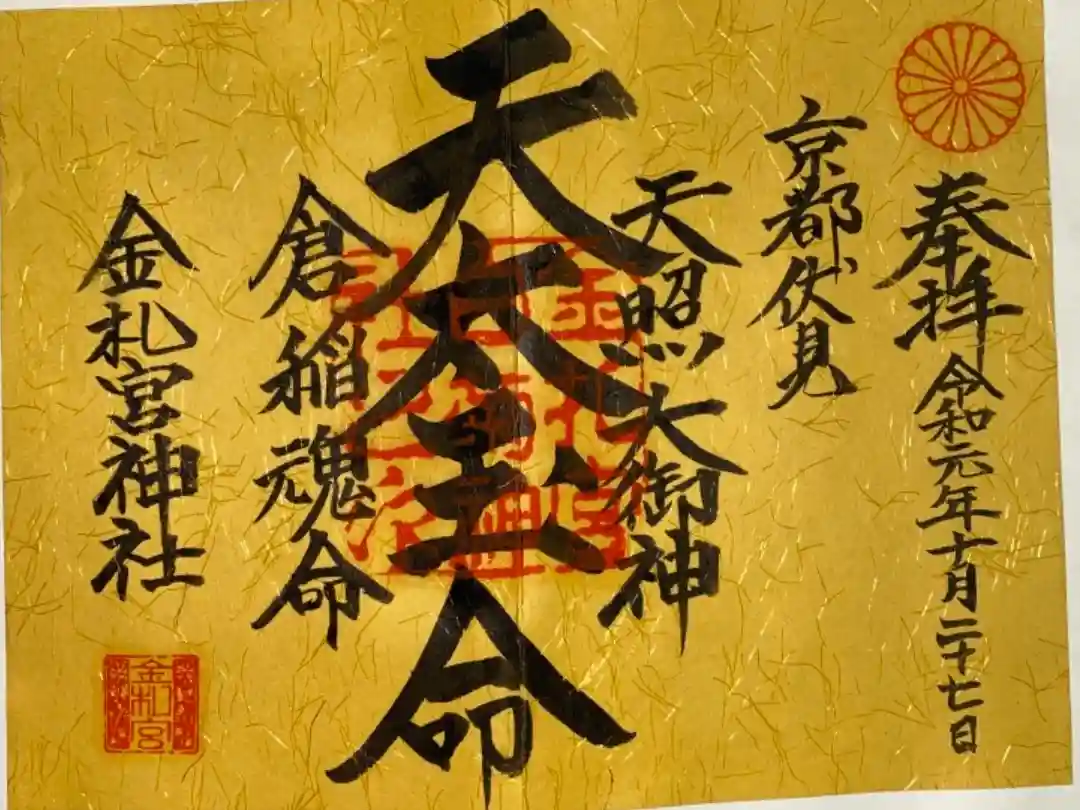 奉拝
令和元年十月二十七日
京都伏見
天照大御神
天太玉命
倉稲魂命
金札宮神社
金札宮